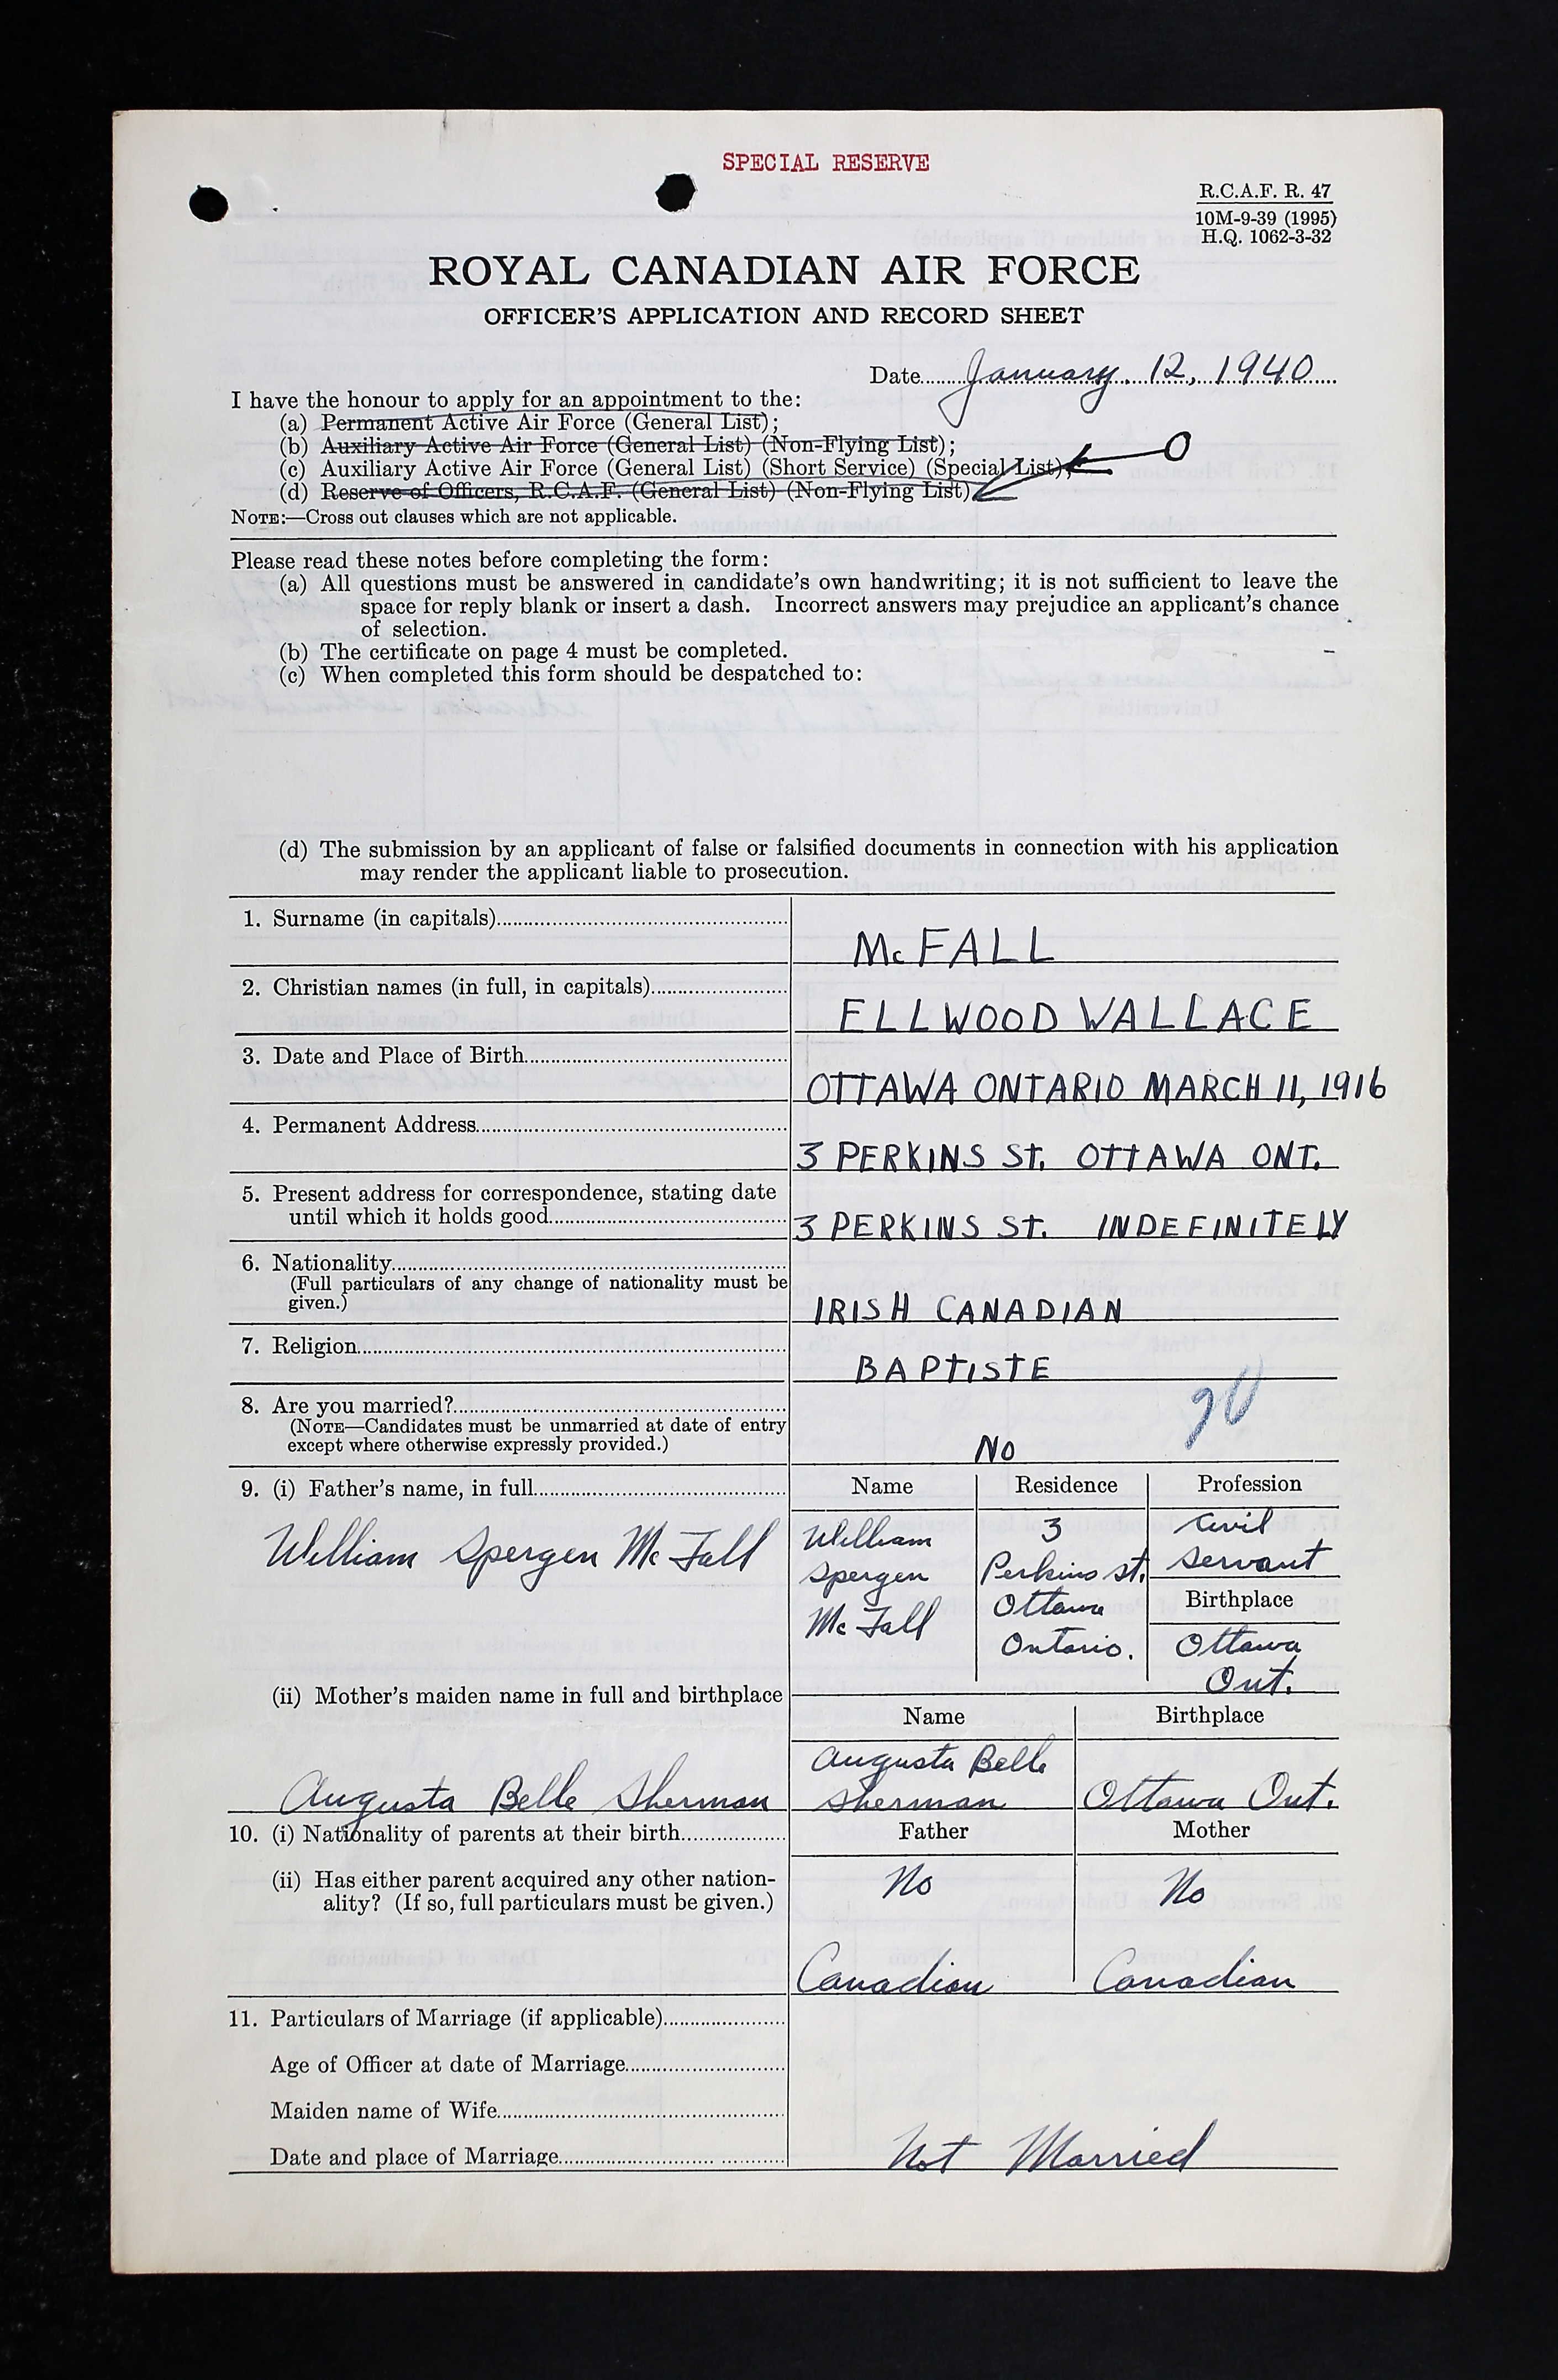 SPECIAL RESERVE
R.C.A.F. R. 47
10M-9-39 (1995)
H.Q. 1062-3-32
ROYAL CANADIAN AIR FORCE
OFFICER'S APPLICATION AND RECORD SHEET
Date January. 12, 1940
I have the honour to apply for an appointment to the:
(a) Permanent Active Air Force (General List);
(b) Auxiliary Active Air Force (General List) (Non-Flying List);
(c) Auxiliary Active Air Force (General List) (Short Service) (Special List);
(d) Reserve of Officers, R.C.A.F. (General List) (Non-Flying List)
NOTE:—Cross out clauses which are not applicable.
Please read these notes before completing the form:
(a) All questions must be answered in candidate's own handwriting; it is not sufficient to leave the
space for reply blank or insert a dash. Incorrect answers may prejudice an applicant's chance
of selection.
(b) The certificate on page 4 must be completed.
(c) When completed this form should be despatched to:
(d) The submission by an applicant of false or falsified documents in connection with his application
may render the applicant liable to prosecution.
1. Surname (in capitals)
McFALL
2. Christian names (in full, in capitals)
ELLWOOD WALLACE
3. Date and Place of Birth
OTTAWA ONTARIO MARCH 11, 1916
4. Permanent Address
3 PERKINS St. OTTAWA ONT.
5. Present address for correspondence, stating date
until which it holds good
3 PERKINS St. INDEFINITELY
6. Nationality
(Full particulars of any change of nationality must be
given.)
IRISH CANADIAN
7. Religion
BAPTISTE
8. Are you married?
(NOTE—Candidates must be unmarried at date of entry
except where otherwise expressly provided.)
No
9. (i) Father's name, in full
Name Residence Profession
William Spergen Mc Fall
William 3 Civil
Spergen Perkins st. Servant
Mc Fall Ottawa Birthplace
Ontario. Ottawa
Ont.
(ii) Mother's maiden name in full and birthplace
Name Birthplace
Augusta Belle
Augusta Belle Sherman Sherman Ottawa Ont.
10. (i) Nationality of parents at their birth
Father Mother
(ii) Has either parent acquired any other nation-
ality? (If so, full particulars must be given.)
No No
Canadian Canadian
11. Particulars of Marriage (if applicable)
Age of Officer at date of Marriage
Maiden name of Wife
Date and place of Marriage
Not Married